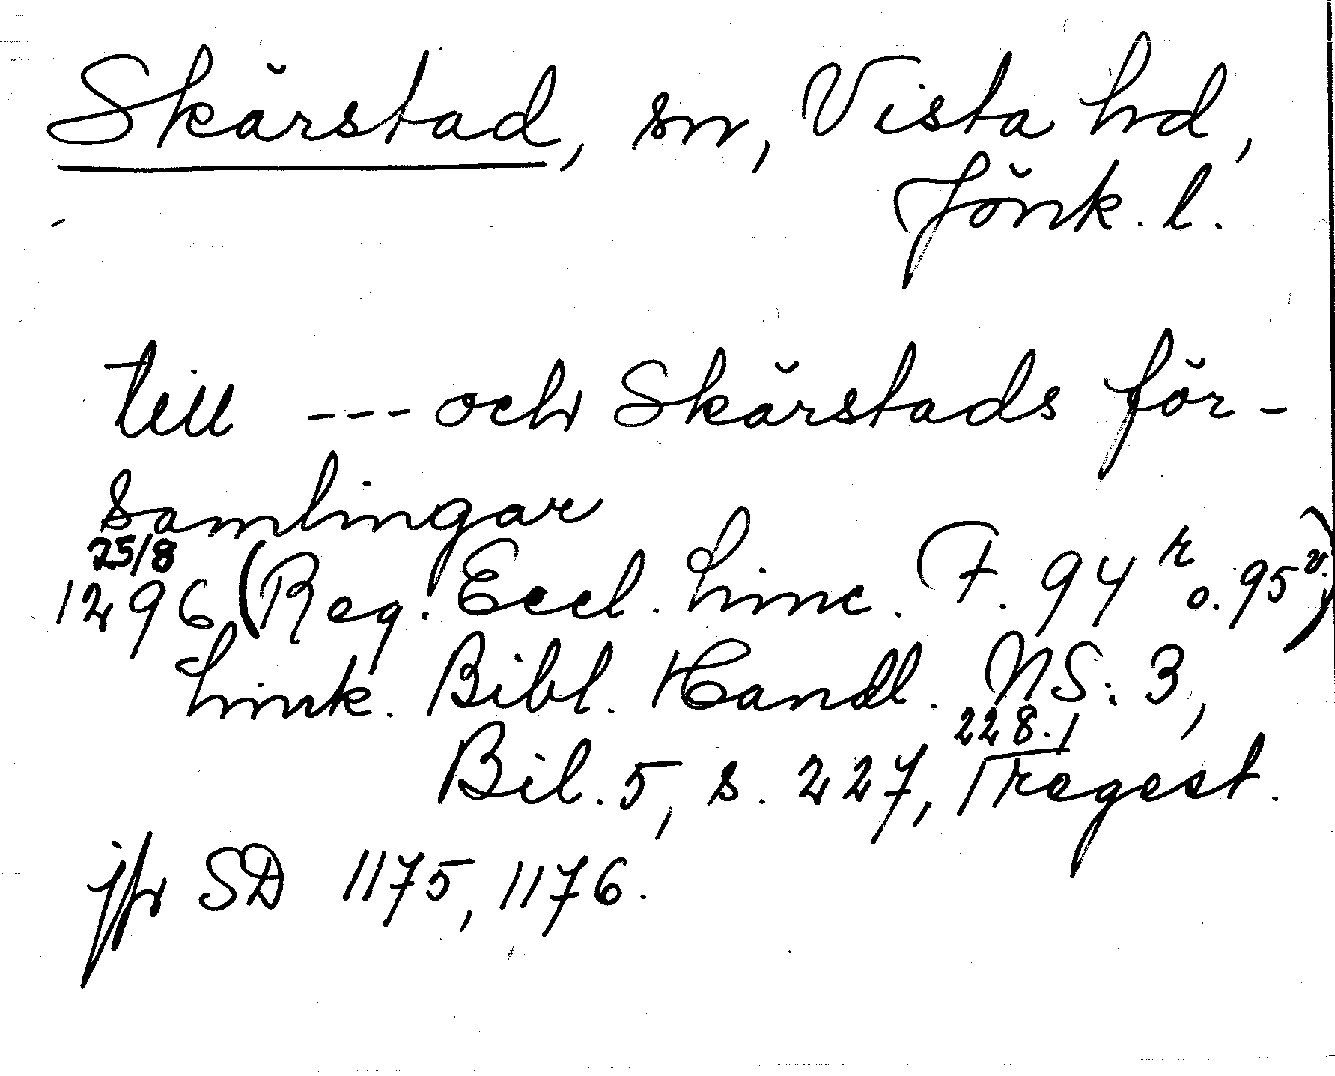 Skärstad, sn, Vista hd,
Jönk. l.
till --- och Skärstads för-
samlingar
25/8
1296 (Reg. Eccl. Linc. F. 94 r o. 95 v.)
Link. Bibl. Handl. NS: 3,
Bil. 5, s. 227, 228. regest.
jfr SD 1175, 1176.